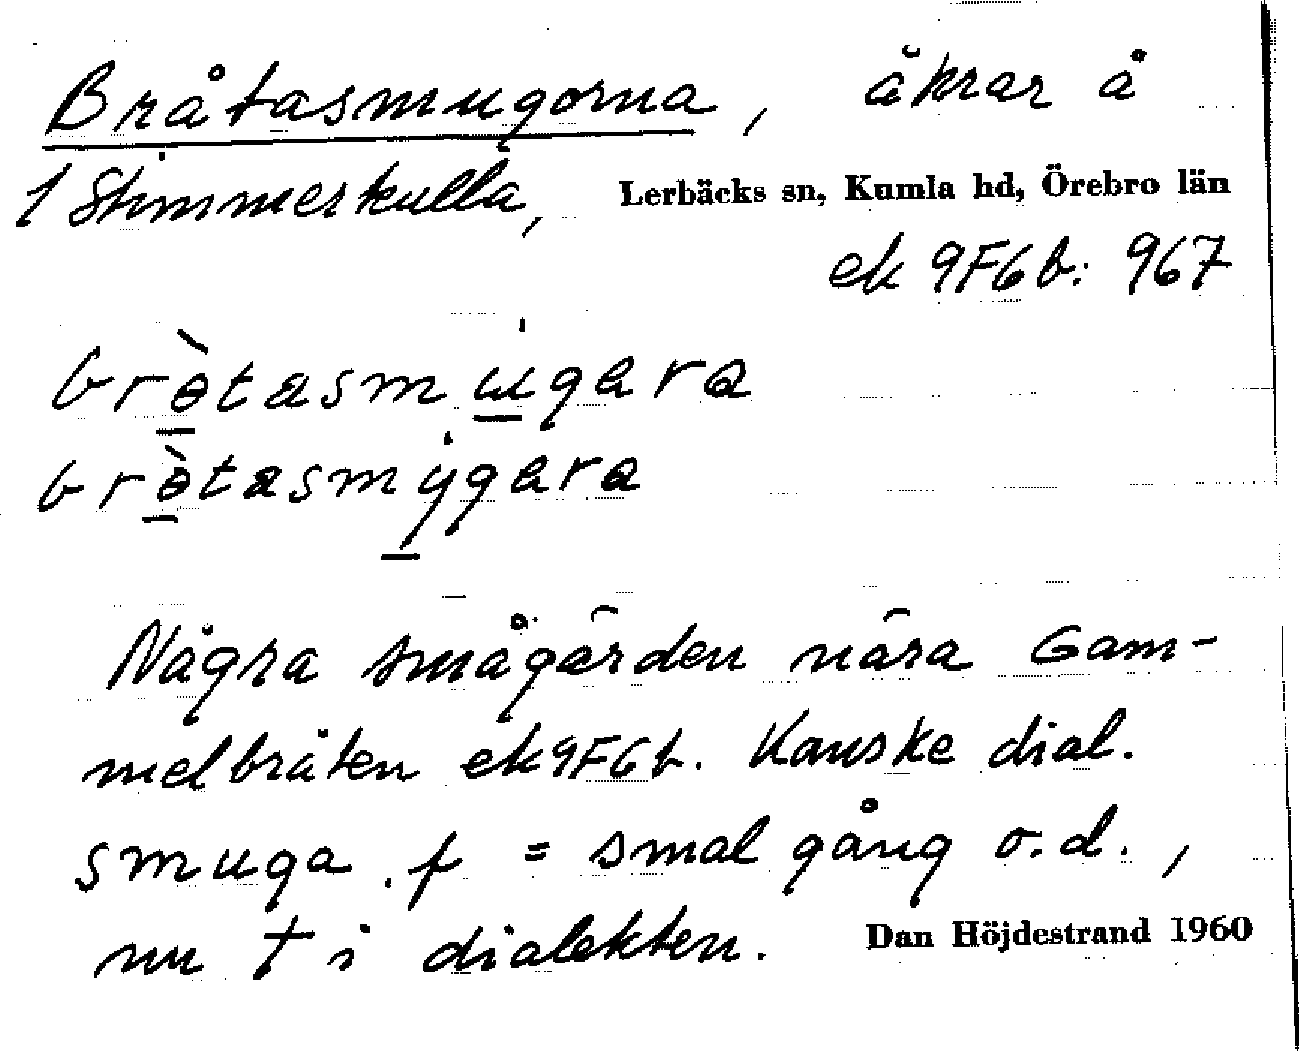 Bråtasmugorna, åkrar å
1 Skimmerkulla, Lerbäcks sn, Kumla hd, Örebro län
ek 9F6b: 967
brə̀tasmɯ́gara
brə̀tasmýgara
Några smågärden nära Gam-
melbråten ek9F6b. Kanske dial.
smuga f = smal gång o.d.,
nu † i dialekten. Dan Höjdestrand 1960